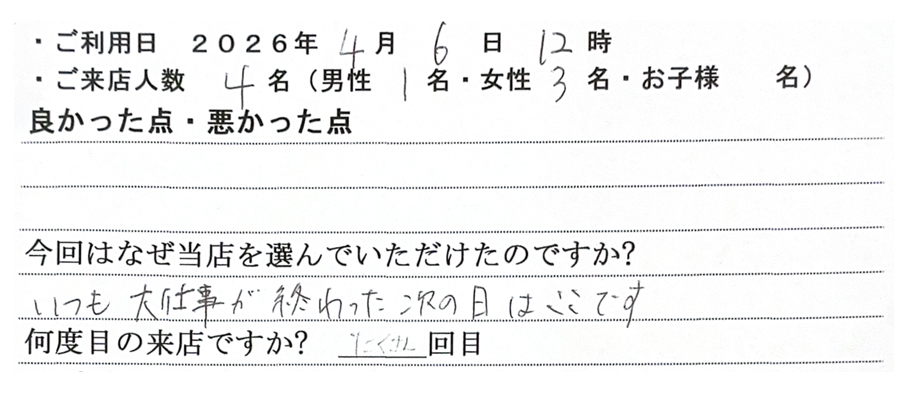 ・ご利用日 2026年 4月 6日 12時
・ご来店人数 4名(男性 1名・女性 3名・お子様 名)
良かった点・悪かった点
今回はなぜ当店を選んでいただけたのですか?
いつも 大仕事が 終わった 次の日 は ここです
何度目の来店ですか? たくさん回目